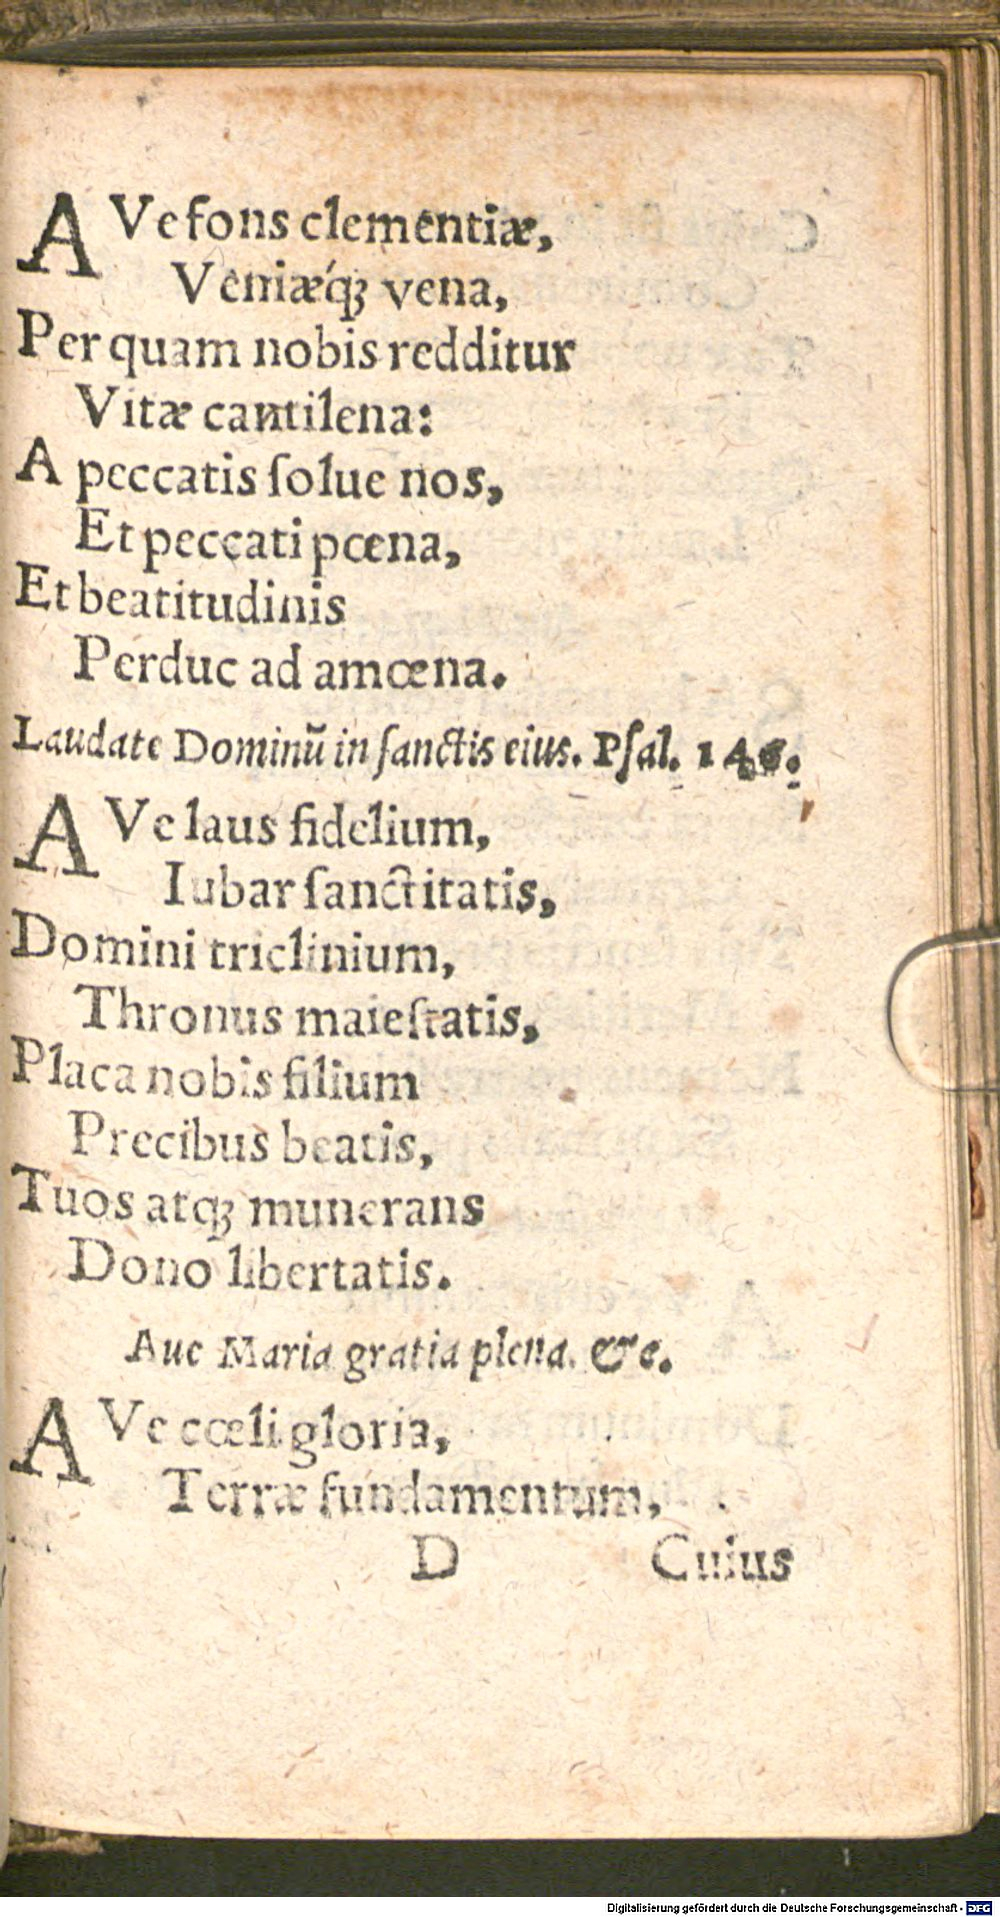 AVe fons clementiæ,
Veniæq́ꝫ vena,
Per quam nobis redditur
Vitæ cantilena:
A peccatis ſolue nos,
Et peccati pœna,
Et beatitudinis
Perduc ad amœna.
Laudate Dominũ in ſanctis eius. Pſal. 146.
AVe laus fidelium,
Iubar ſanctitatis,
Domini triclinium,
Thronus maieſtatis,
Placa nobis filium
Precibus beatis,
Tuos atqꝫ munerans
Dono libertatis.
Aue Maria gratia plena. &c.
AVe cœli gloria,
Terræ fundamentum,
D Cuius
Digitalisierung gefördert durch die Deutsche Forschungsgemeinschaft - DFG